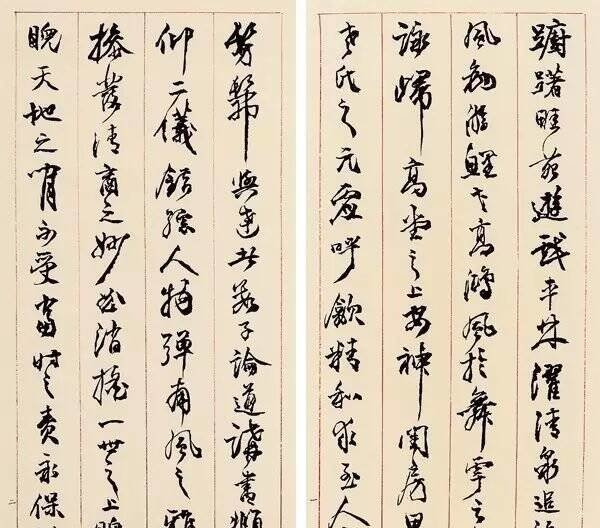 躕躇畦苑遊戲平林濯清泉追
風釣游鯉弋高鴻風於舞雩之
詠歸高堂之上安神閨房思
老氏之元虛呼歙精和求至人
髣髴與達者數子論道講書頫
仰二儀錯綜人物彈南風之雅
操發清商之妙曲消搖一世之上睥
睨天地之間不受當時之責永保
二
一